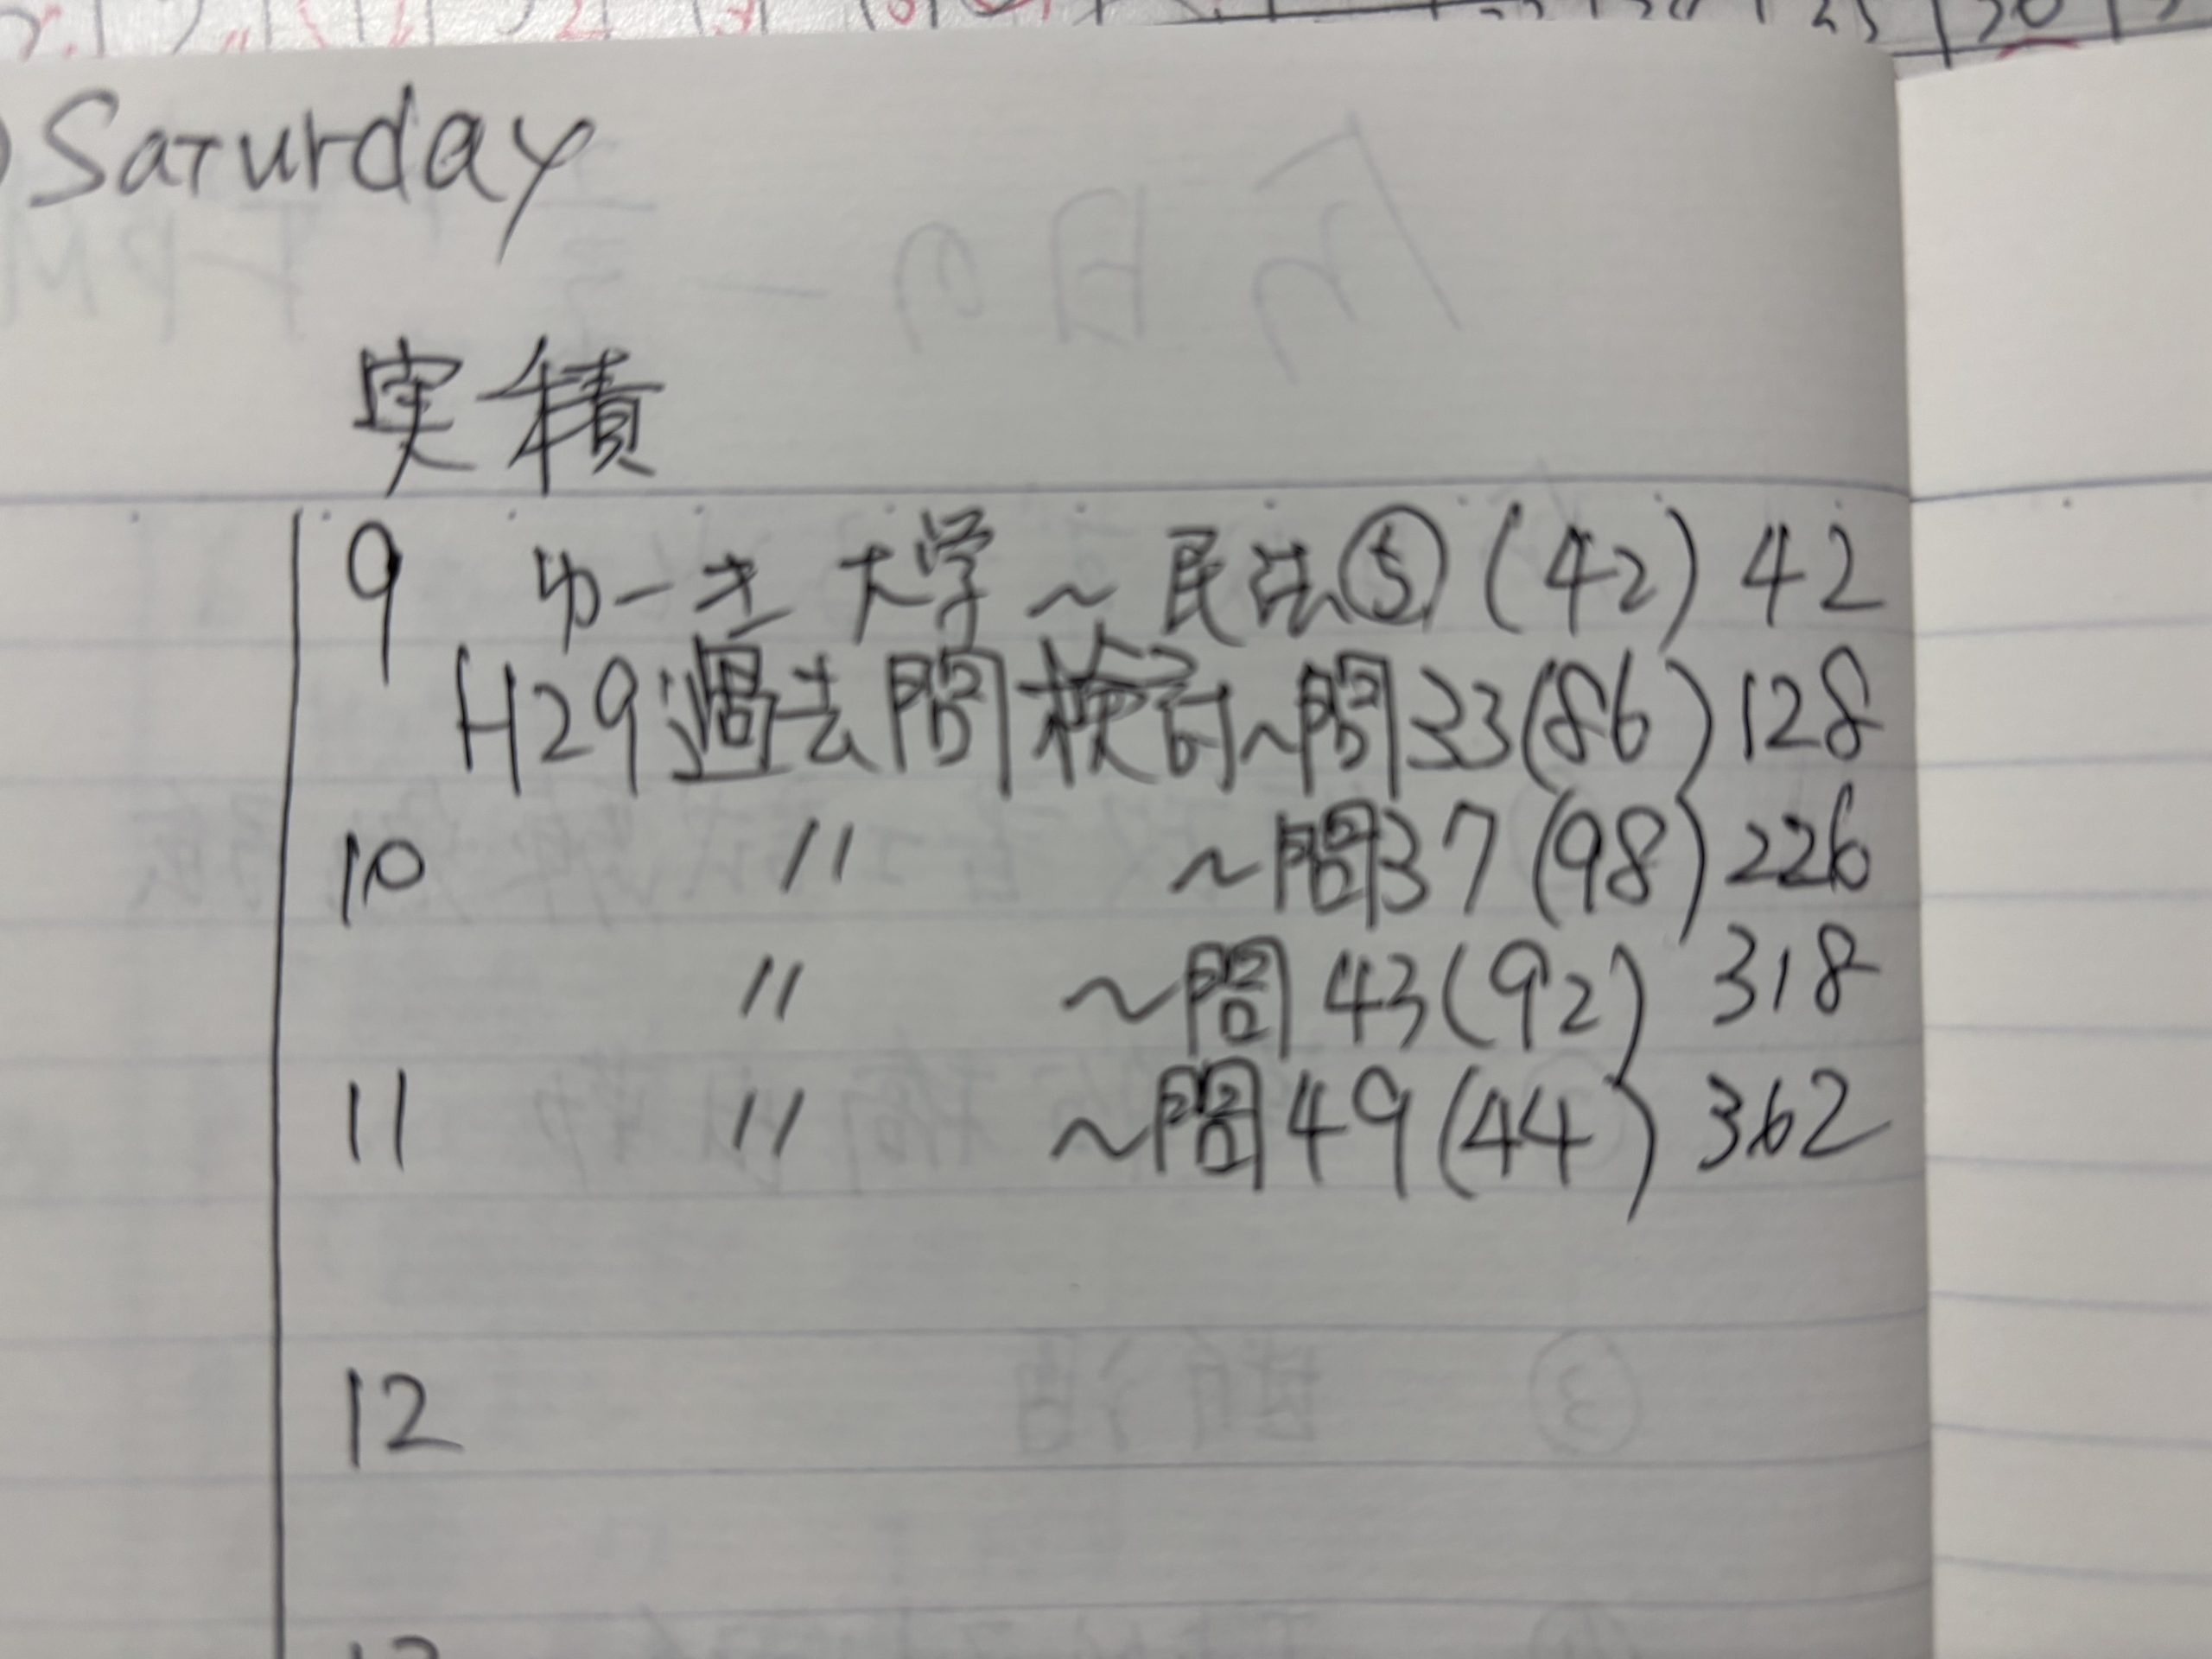 Saturday
実積
9 ゆーき大学～民法⑤(42) 42
H29過去問検討～問33(86) 128
10 〃 ～問37(98) 226
〃 ～問43(92) 318
11 〃 ～問49(44) 362
12